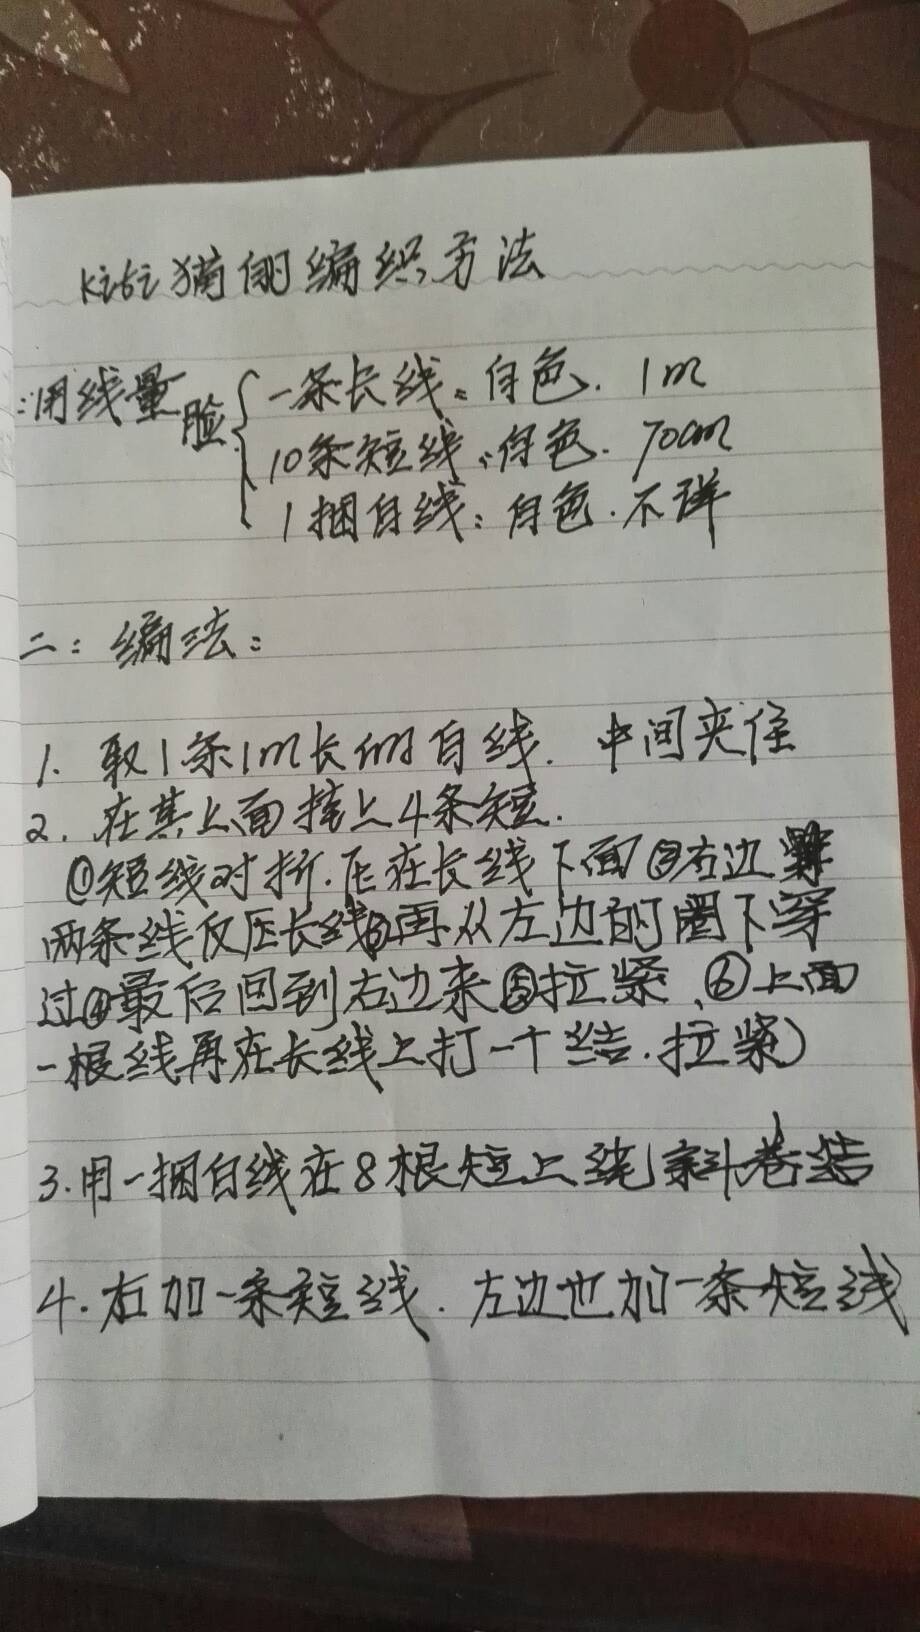 kiti猫的编织方法
:用线量 脸 一条长线:白色. 1m
10条短线:白色. 70cm
1捆白线:白色.不详
二:编法:
1. 取1条1m长的白线. 中间夹住
2. 在其上面挂上4条短.
①短线对折.压在长线下面②右边
两条线反压长线③再从左边的圈下穿
过④最后回到右边来⑤拉紧、⑥上面
一根线再在长线上打一个结.拉紧)
3.用一捆白线在8根短上绕斜卷结
4.右加一条短线.左边也加一条短线